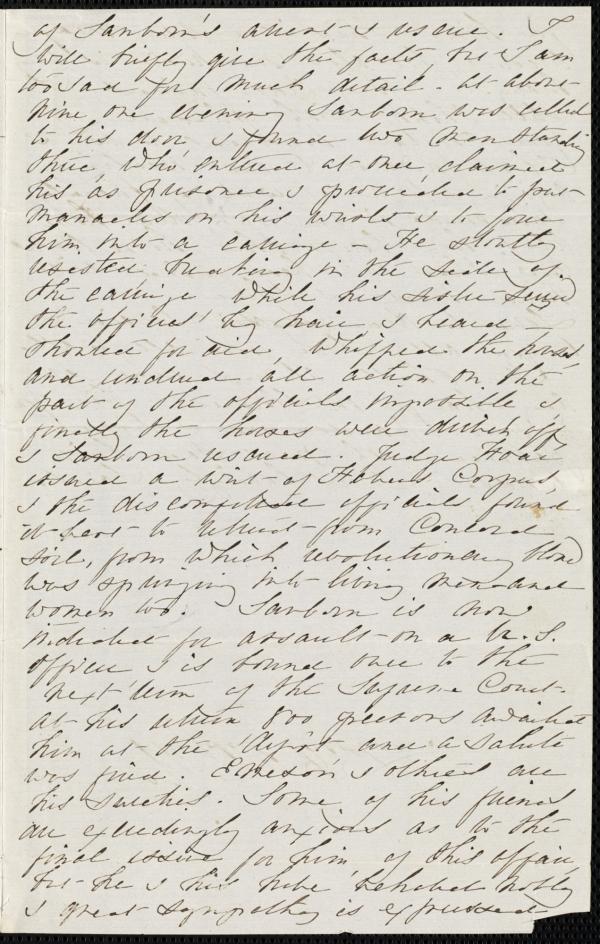 of Sanborn's arrest & rescue. I
will briefly give the facts, but I am
too sad for much detail. at about
nine one evening Sanborn was called
to his door & found two men standing
there, who entered at once, claimed
him as prisoner & proceeded to put
manacles on his wrists & to force
him into a carriage - He stoutly
resisted breaking in the side of
the carriage while his sister seized
the officers' by hair & beard -
shouted for aid, whipped the horses,
and rendered all action on the
part of the officials impossible &
finally the horses were driven off
& Sanborn rescued. Judge Hoar
issued a writ of Habeas Corpus,
& the discomfited officials found
it best to retreat from Concord
soil, from which revolutionary blood
was springing into living men and
women too. Sanborn is now
indicted for assault on a U. S.
officer & is bound over to the
next term of the Supreme Court.
at his return 800 persons awaited
him at the depôt and a salute
was fired. Emerson & others are
his sureties. Some of his friends
are exceedingly anxious as to the
final issue for him, of this affair,
but he & his behaved nobly
& great sympathy is expressed